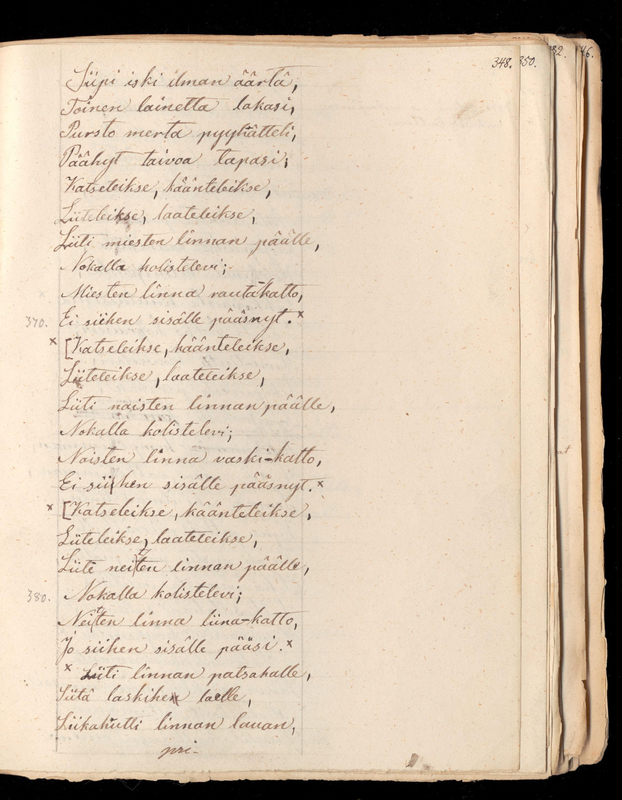 348. 350. 46.
Siipi iski ilman äärtä,
Toinen lainetta lakasi,
Pursto merta pyyhätteli,
Päähyt taivoa tapasi;
Katseleikse, käänteleikse,
Liiteleikse, laateleikse,
Liiti miesten linnan päälle,
Nokalla kolistelevi;
Miesten linna rautakatto,
370. Ei siihen sisälle pääsnyt.x
x [Katseleikse, käänteleikse,
Liiteleikse, laateleikse,
Liiti naisten linnan päälle,
Nokalla kolistelevi;
Naisten linna vaski-katto,
Ei siihen sisälle pääsnyt.x
x [Katseleikse, käänteleikse,
Liiteleikse, laateleikse,
Liiti neiten linnan päälle,
380. Nokalla kolistelevi;
Neiten linna liina-katto,
Jo siihen sisälle pääsi.x
x Liiti linnan patsahalle,
Siitä laskihen laelle,
Liikahutti linnan lauan,
pri-